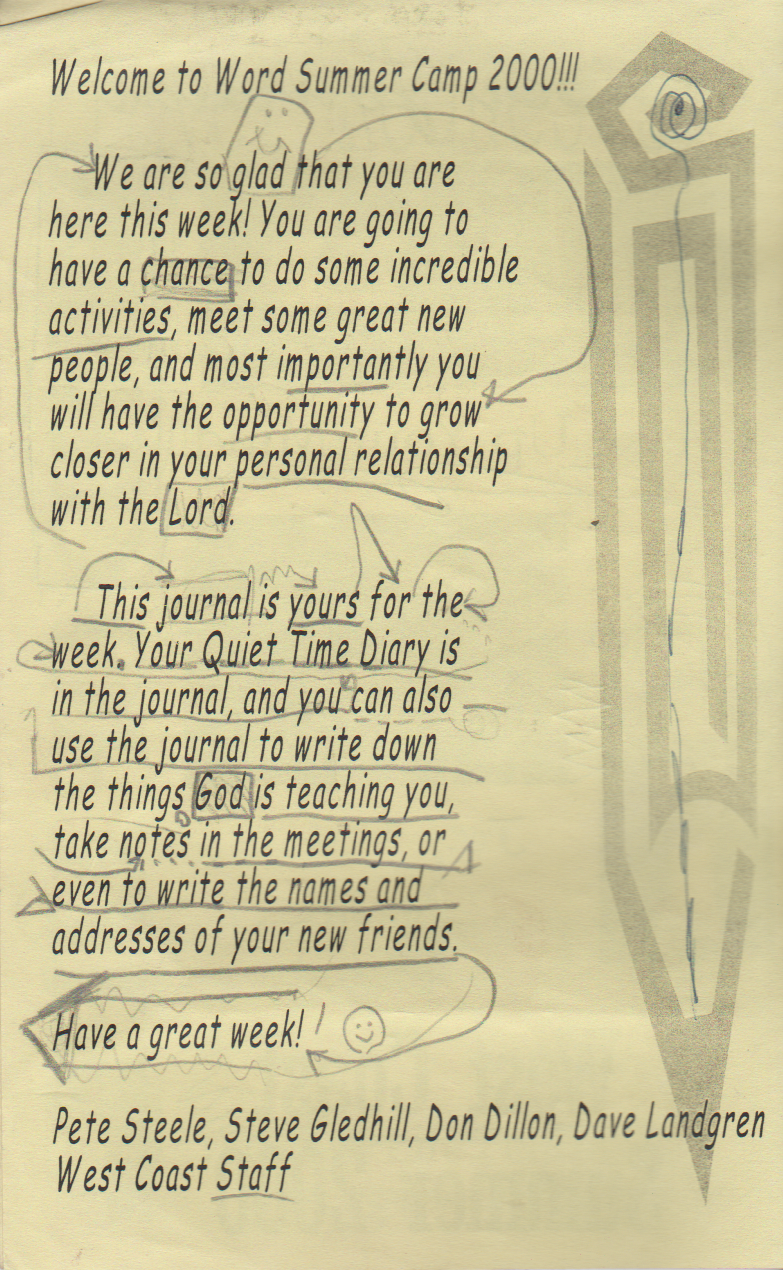 Welcome to Word Summer Camp 2000!!!
We are so glad that you are
here this week! You are going to
have a chance to do some incredible
activities, meet some great new
people, and most importantly you
will have the opportunity to grow
closer in your personal relationship
with the Lord.
This journal is yours for the
week. Your Quiet Time Diary is
in the journal, and you can also
use the journal to write down
the things God is teaching you,
take notes in the meetings, or
even to write the names and
addresses of your new friends.
Have a great week!
Pete Steele, Steve Gledhill, Don Dillon, Dave Landgren
West Coast Staff